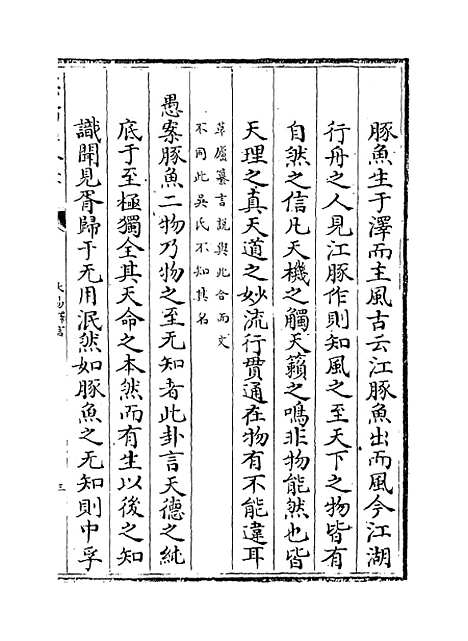 豚魚生于澤而主風古云江豚魚出而風今江湖
行舟之人見江豚作則知風之至天下之物皆有
自然之信凡天機之觸天籟之鳴非物能然也皆
天理之真天道之妙流行貫通在物有不能違耳
草廬纂言説與此合而文
不同此吳氏不知其名
愚案豚魚二物乃物之至无知者此卦言天德之純
底于至極獨全其天命之本然而有生以後之知
識聞見胥歸于无用泯然如豚魚之无知則中孚
三